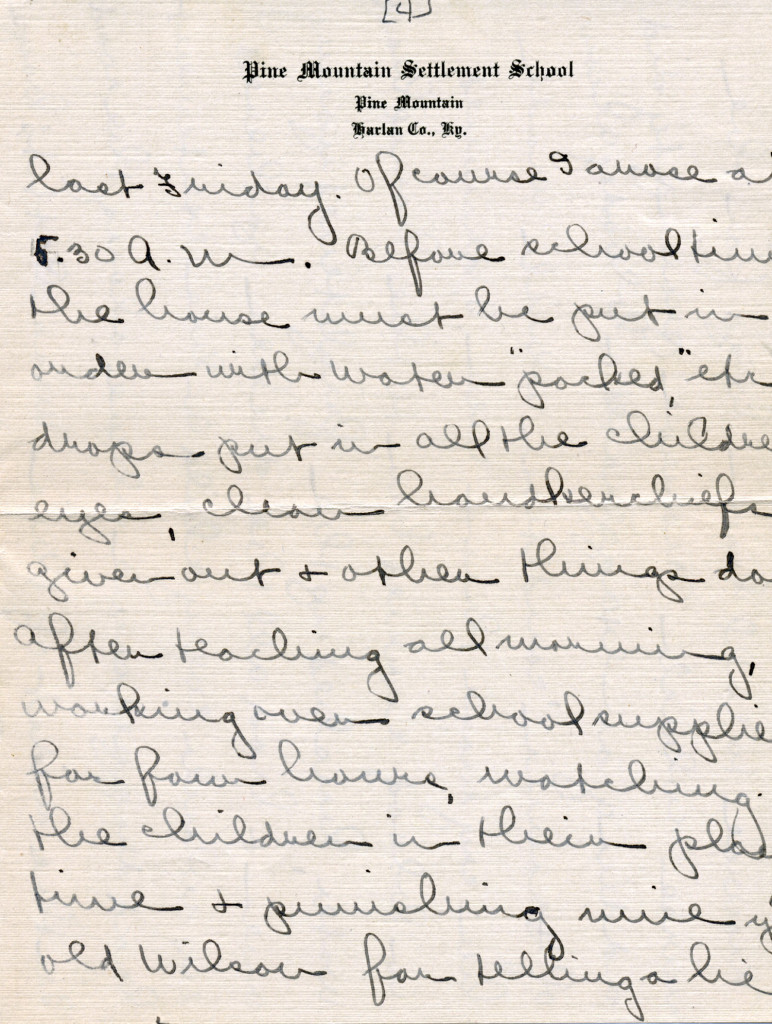 [4]
Pine Mountain Settlement School
Pine Mountain
Harlan Co., Ky.
last Friday. Of course I arose a
5.30 A. M. Before school tim
the house must be put in
order with water "packed," etc
drops put in all the childre
eyes, clean handkerchiefs
given out & other things do
After teaching all morning,
working over school supplie
for four hours, watching
the children in their pla
time & punishing nine y
old Wilson for telling a lie